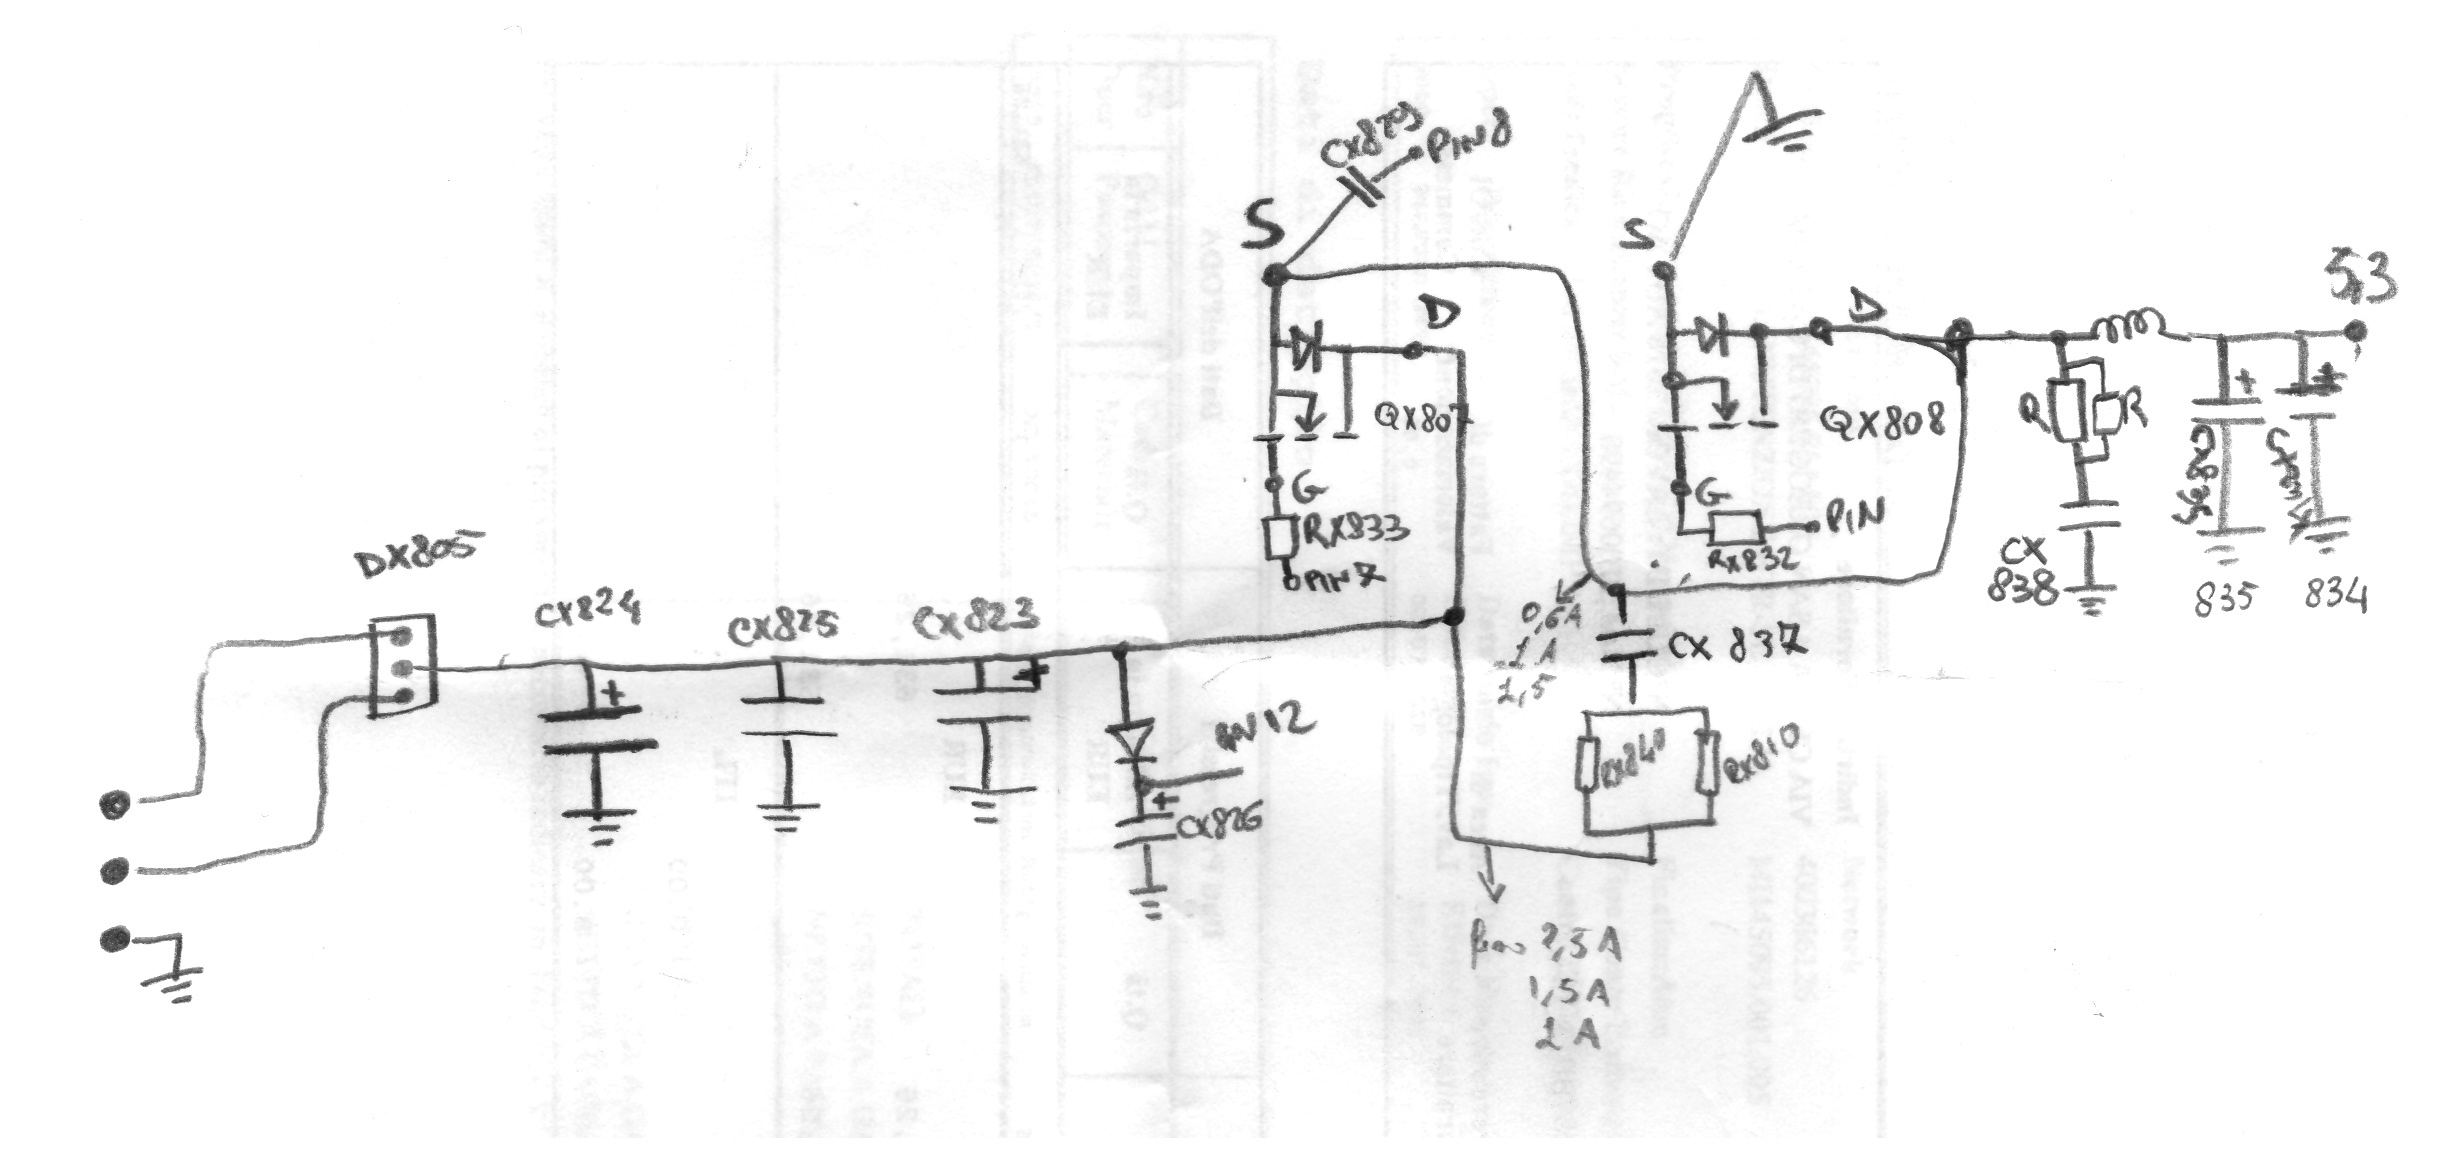 CX829
PIN 8
S
S
5,3
D
D
QX807
QX808
R
R
G
RX833
PIN 7
G
PIN
RX832
CX
838
835
834
DX805
CX824
CX825
CX823
+
+
+
+
+
0,6A
1A
1,5
CX 837
RX840
RX810
PIN 12
CX826
2,5 A
1,5 A
1 A